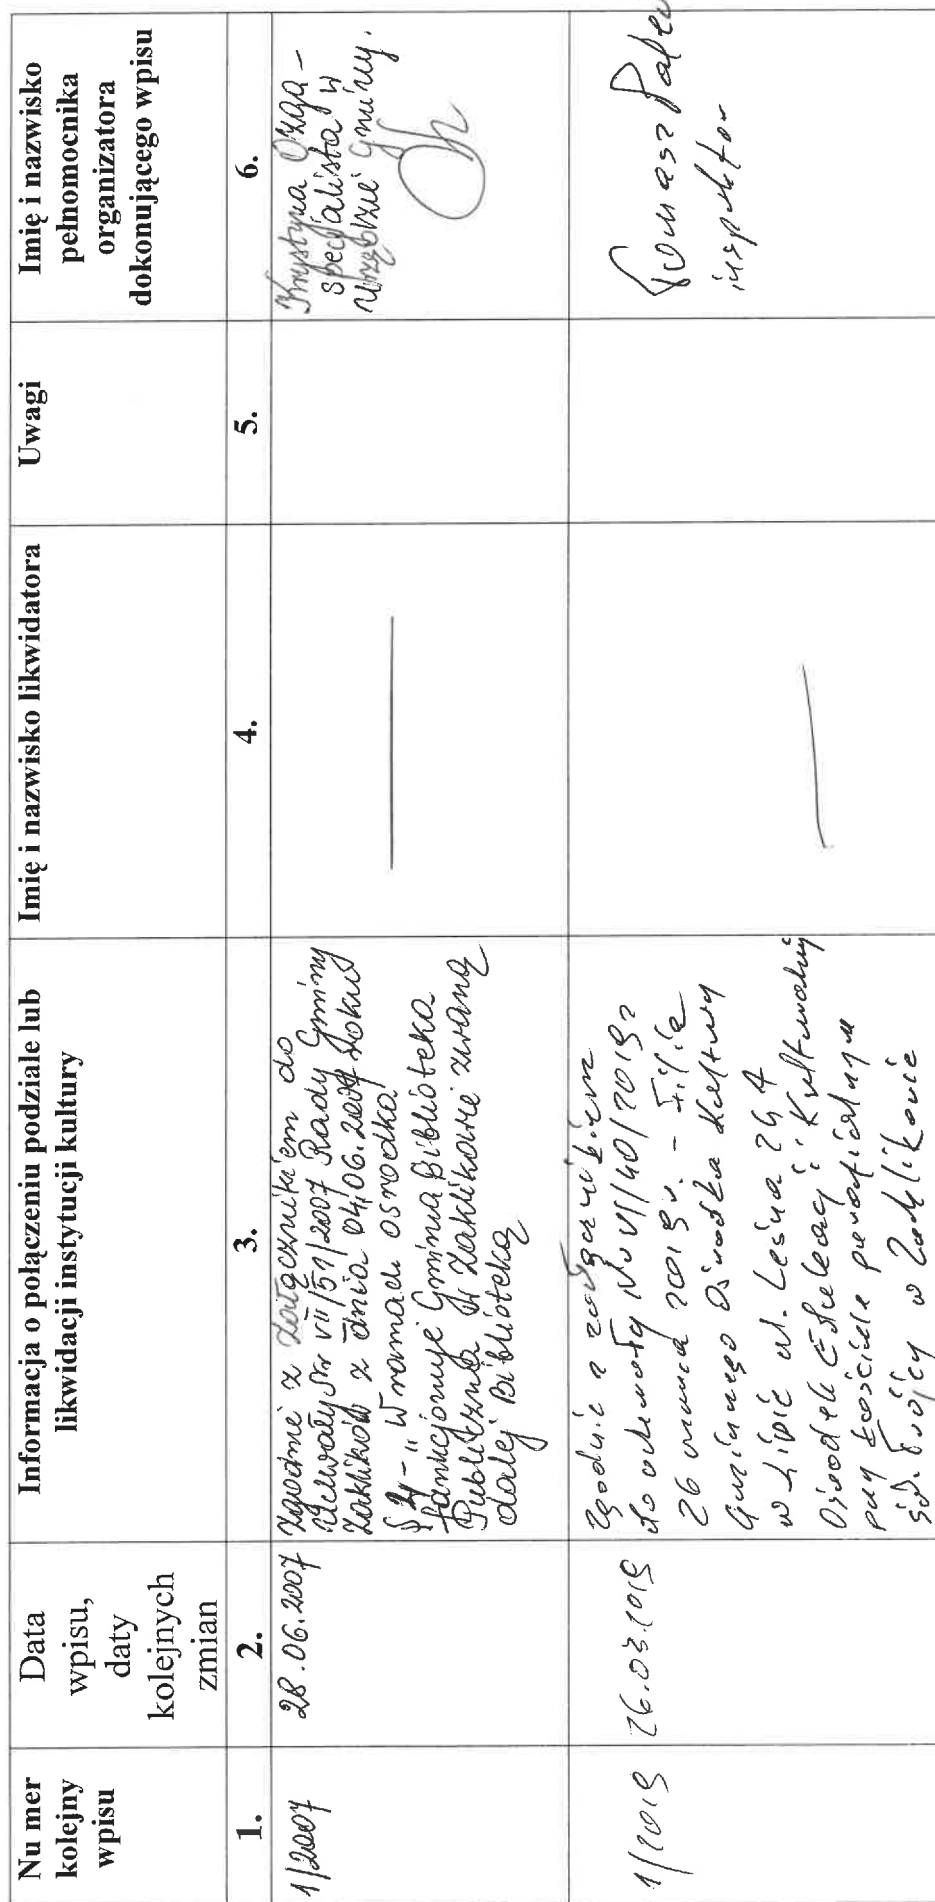 Nu mer
kolejny
wpisu
Data
wpisu,
daty
kolejnych
zmian
Informacja o połączeniu podziale lub
likwidacji instytucji kultury
Imię i nazwisko likwidatora
Uwagi
Imię i nazwisko
pełnomocnika
organizatora
dokonującego wpisu
1.
2.
3.
4.
5.
6.
1/2007
28.06.2007
Zgodnie z załącznikiem do
Uchwały Nr VII/51/2007 Rady Gminy
Zaklików z dnia 04.06.2007 roku
§ 4 - "W ramach ośrodka
funkcjonuje Gminna Biblioteka
Publiczna w Zaklikowie zwaną
dalej Biblioteką
Krystyna Ożga -
specjalista w
Urzędzie Gminy.
1/2019
26.03.2019
Zgodnie z załącznikiem
do uchwały Nr VI/40/2019 z
26 marca 2019 r. - Filie
Gminnego Ośrodka Kultury
w Lipie ul. Leśna
Ośrodek Edukacji Kulturalnej
przy kościele parafialnym
św. Trójcy w Zaklikowie
Tomasz
inspektor